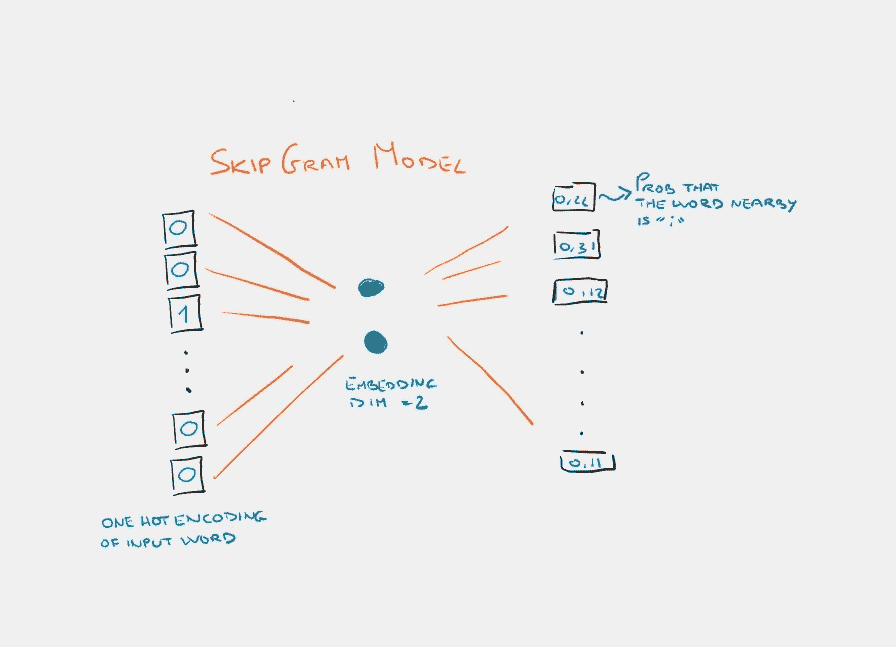 SKIP GRAM MODEL
0
0
1
0
0
ONE HOT ENCODING
OF INPUT WORD
EMBEDDING
DIM = 2
0,31
0,12
0,11
PROB THAT
THE WORD NEARBY
IS "i"